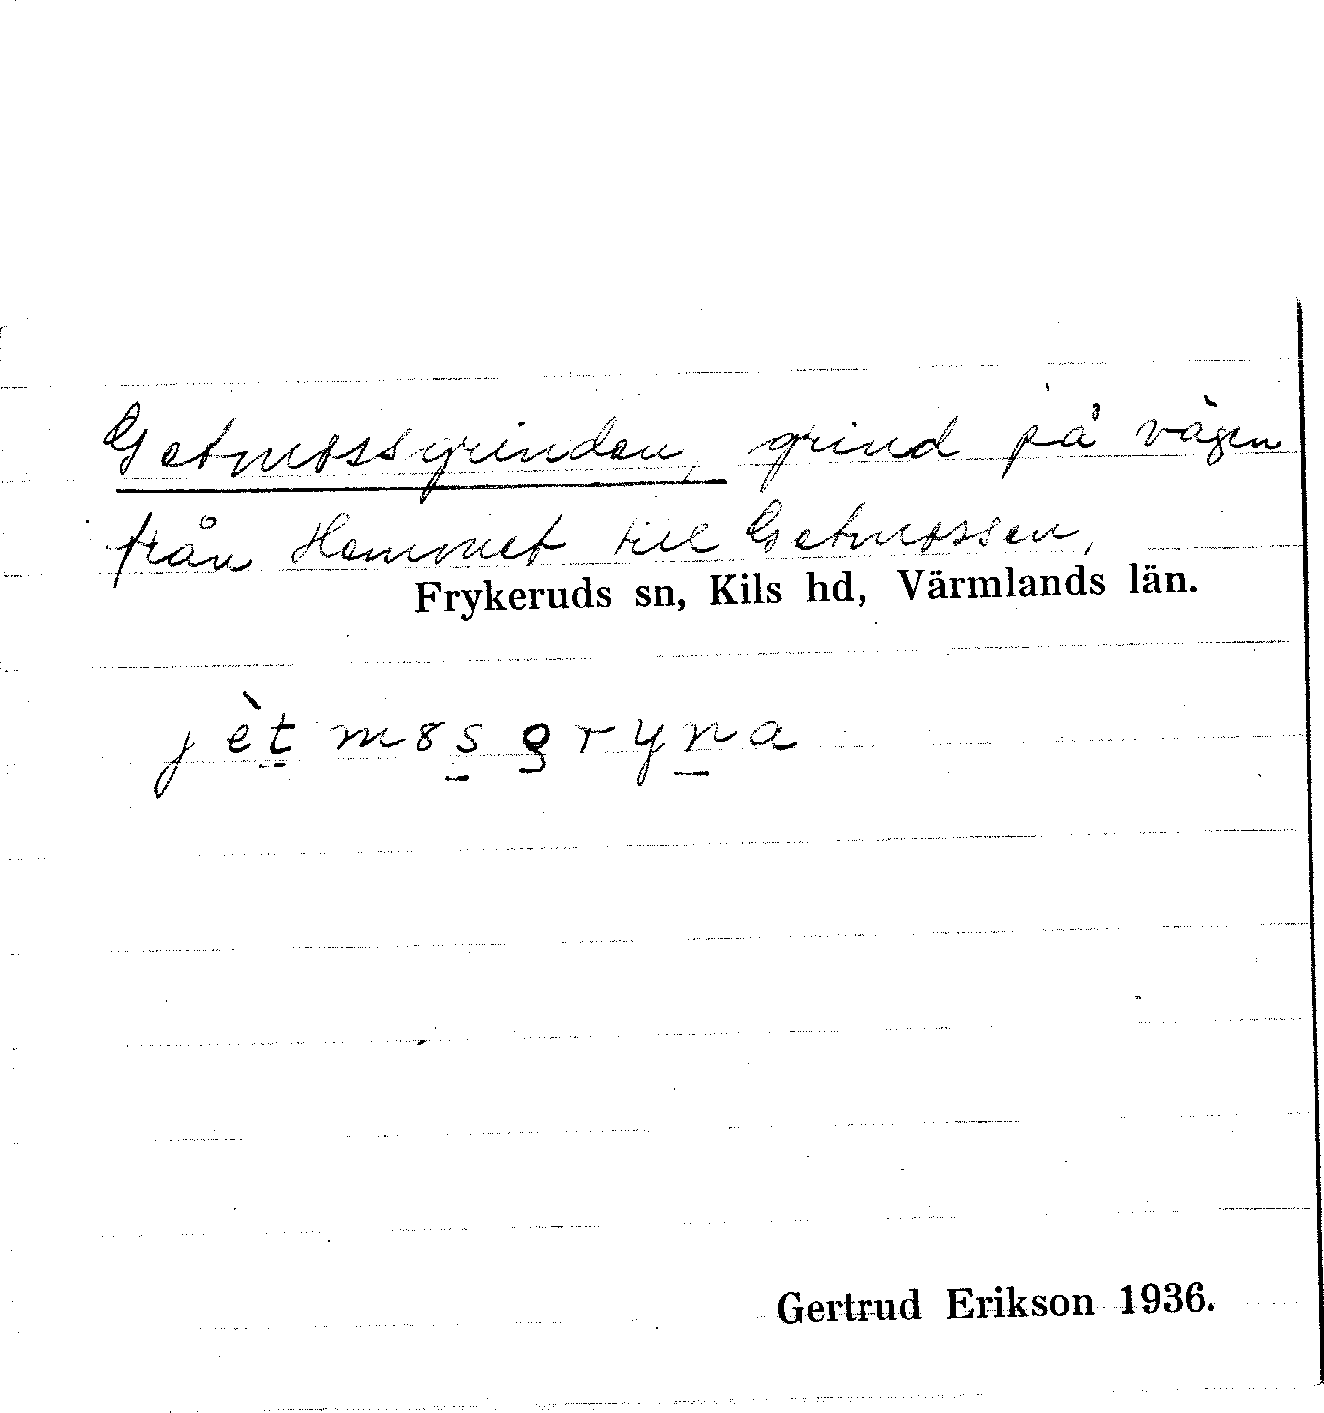 Getmossgrinden, grind på vägen
från Hemmet till Getmossen,
Frykeruds sn, Kils hd, Värmlands län.
jèt mos gryna
Gertrud Erikson 1936.